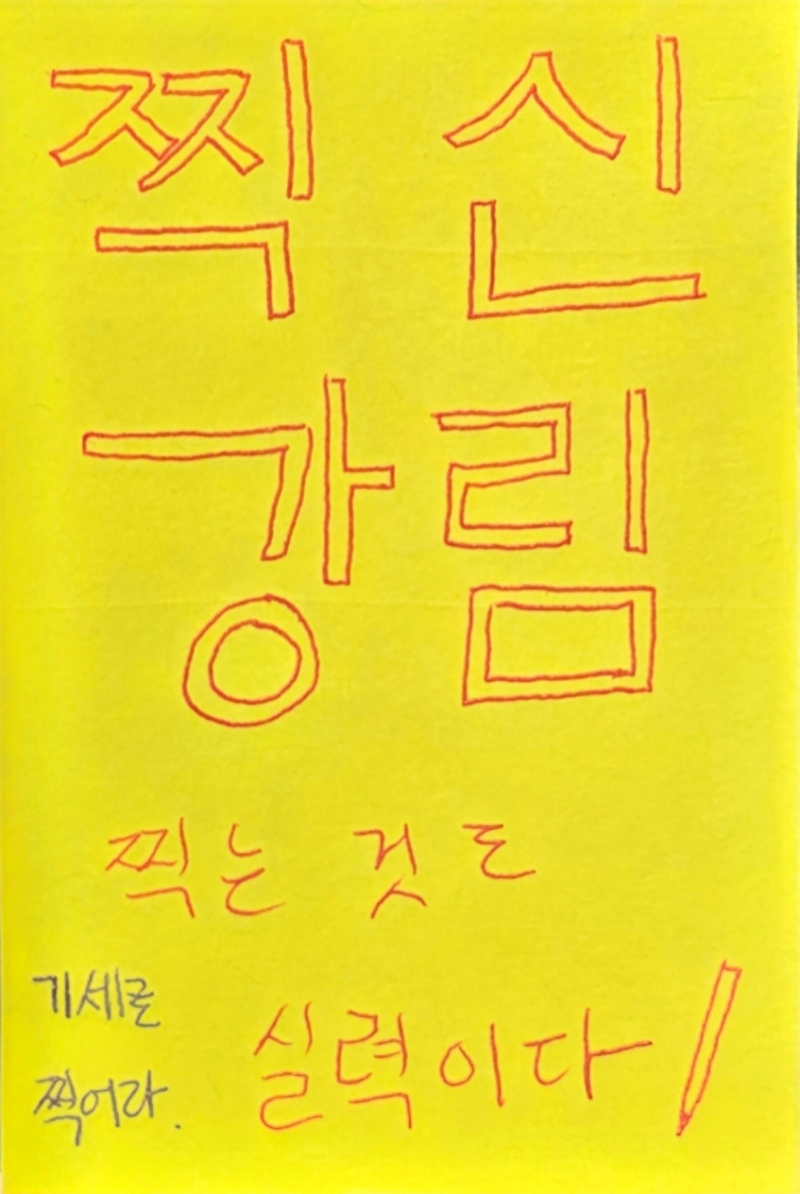 찍신
강림
찍는 것도
실력이다
기세로
찍어라.